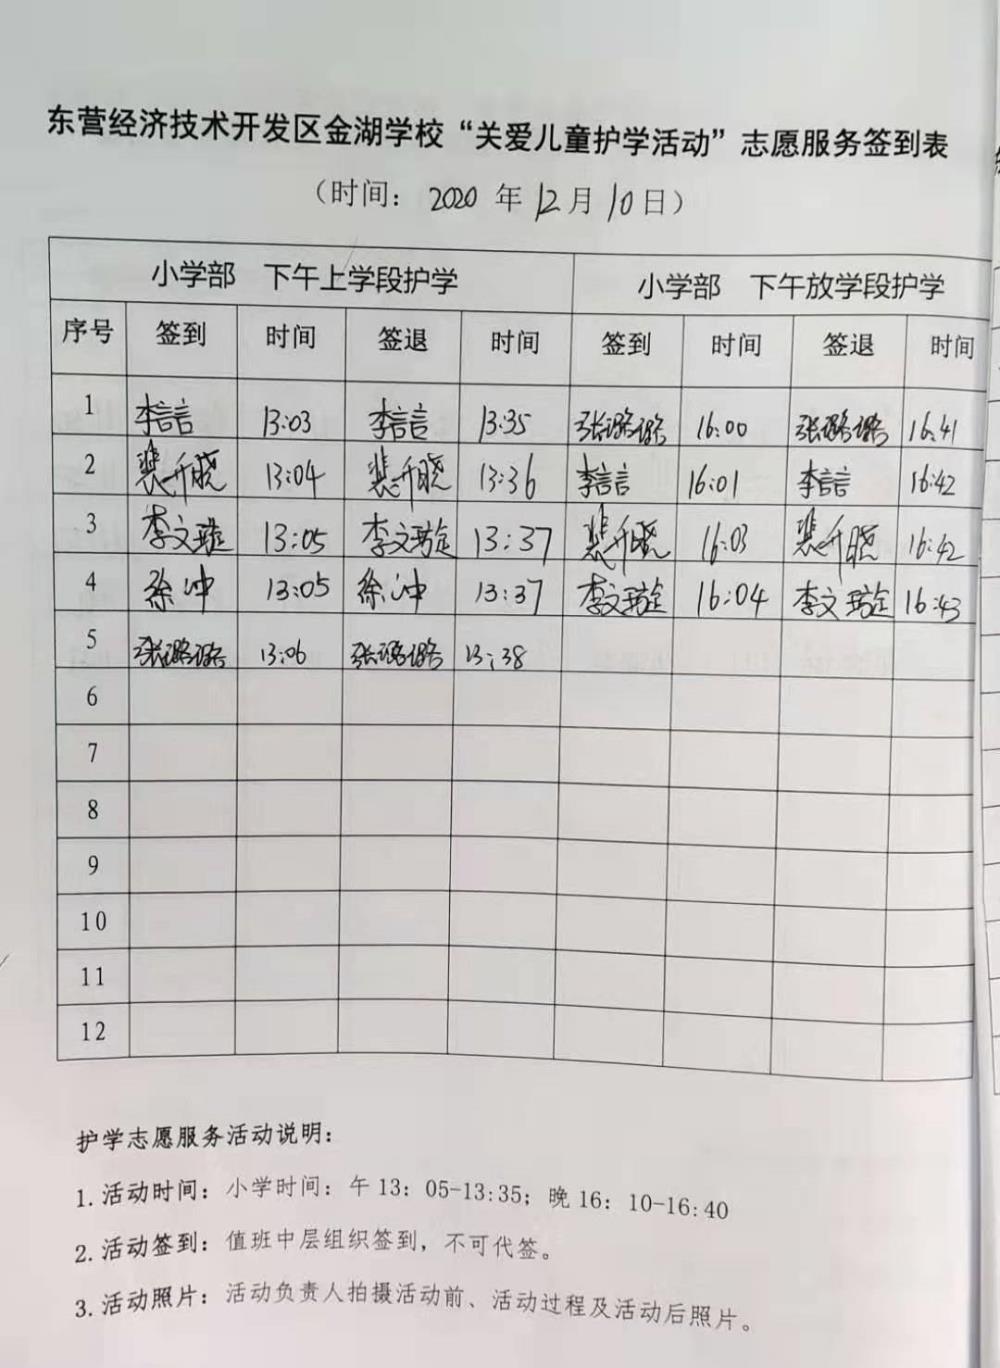 东营经济技术开发区金湖学校“关爱儿童护学活动”志愿服务签到表
（时间：2020年12月10日）
小学部 下午上学段护学 小学部 下午放学段护学
序号 签到 时间 签退 时间 签到 时间 签退 时间
1 李言言 13:03 李言言 13:35 张璐璐 16:00 张璐璐 16:41
2 裴升晓 13:04 裴升晓 13:36 李言言 16:01 李言言 16:42
3 李文璇 13:05 李文璇 13:37 裴升晓 16:03 裴升晓 16:42
4 徐冲 13:05 徐冲 13:37 李文璇 16:04 李文璇 16:43
5 张璐璐 13:06 张璐璐 13:38
6
7
8
9
10
11
12
护学志愿服务活动说明：
1.活动时间：小学时间：午13：05-13:35；晚16：10-16:40
2.活动签到：值班中层组织签到，不可代签。
3.活动照片：活动负责人拍摄活动前、活动过程及活动后照片。